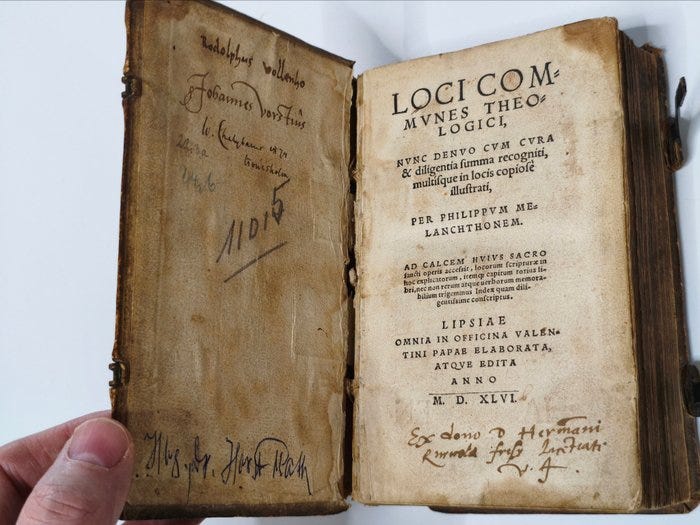 Rodolphus Vollenho
Johannes Vorstius
W. Chalybaeus 1870
11015
Hbg. Dr. Horst
LOCI COM-
MVNES THEO-
LOGICI,
NVNC DENVO CVM CVRA
& diligentia summa recogniti,
multisque in locis copiosè
illustrati,
PER PHILIPPVM ME-
LANCHTHONEM.
AD CALCEM HVIVS SACRO
sancti operis accessit, locorum scripturæ in
hoc explicatorum, itemq; capitum totius li-
bri, nec non rerum atque uerborum memora-
bilium trigeminus Index quàm dili-
gentissime conscriptus.
LIPSIAE
OMNIA IN OFFICINA VALEN-
TINI PAPAE ELABORATA,
ATQVE EDITA
ANNO
M. D. XLVI.
Ex dono D Hermāni